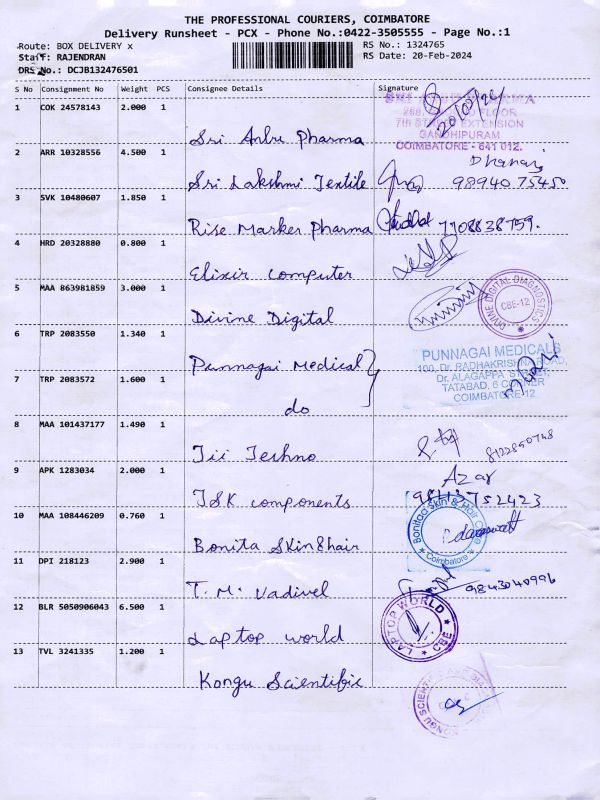 THE PROFESSIONAL COURIERS, COIMBATORE
Delivery Runsheet - PCX - Phone No.:0422-3505555 - Page No.:1
Route: BOX DELIVERY x
RS No.: 1324765
Staff: RAJENDRAN
RS Date: 20-Feb-2024
DRS No.: DCJB132476501
S No Consignment No Weight PCS Consignee Details Signature
1 COK 24578143 2.000 1 Sri Anbu Pharma
7th EXTENSION
GANDHIPURAM
COIMBATORE - 641 012.
20/02/24
2 ARR 10328556 4.500 1 Sri Lakshmi Textile
98940 75450
3 SVK 10480607 1.850 1 Rise Marker Pharma 7708838759.
4 HRD 20328880 0.800 1 Elixir Computer
5 MAA 863981859 3.000 1 Divine Digital
DIVINE DIGITAL DIAGNOSTIC
CBE-12
6 TRP 2083550 1.340 1 Punnagai Medical
PUNNAGAI MEDICALS
100, Dr. RADHAKRISHNAN
Dr. ALAGAPPA STREET,
TATABAD, 6 CORNER
COIMBATORE-12
7 TRP 2083572 1.600 1 do
8 MAA 101437177 1.490 1 Jii Techno
8122850748
9 APK 1283034 2.000 1 JSK components
Azar
10 MAA 108446209 0.760 1 Bonita Skin & hair
Bonitaa Skin & Hair
Coimbatore
11 DPI 218123 2.900 1 T. M. Vadivel
9843040996
12 BLR 5050906043 6.500 1 Laptop world
LAPTOP WORLD
CBE
13 TVL 3241335 1.200 1 Kongu Scientific
KONGU SCIENTIFIC